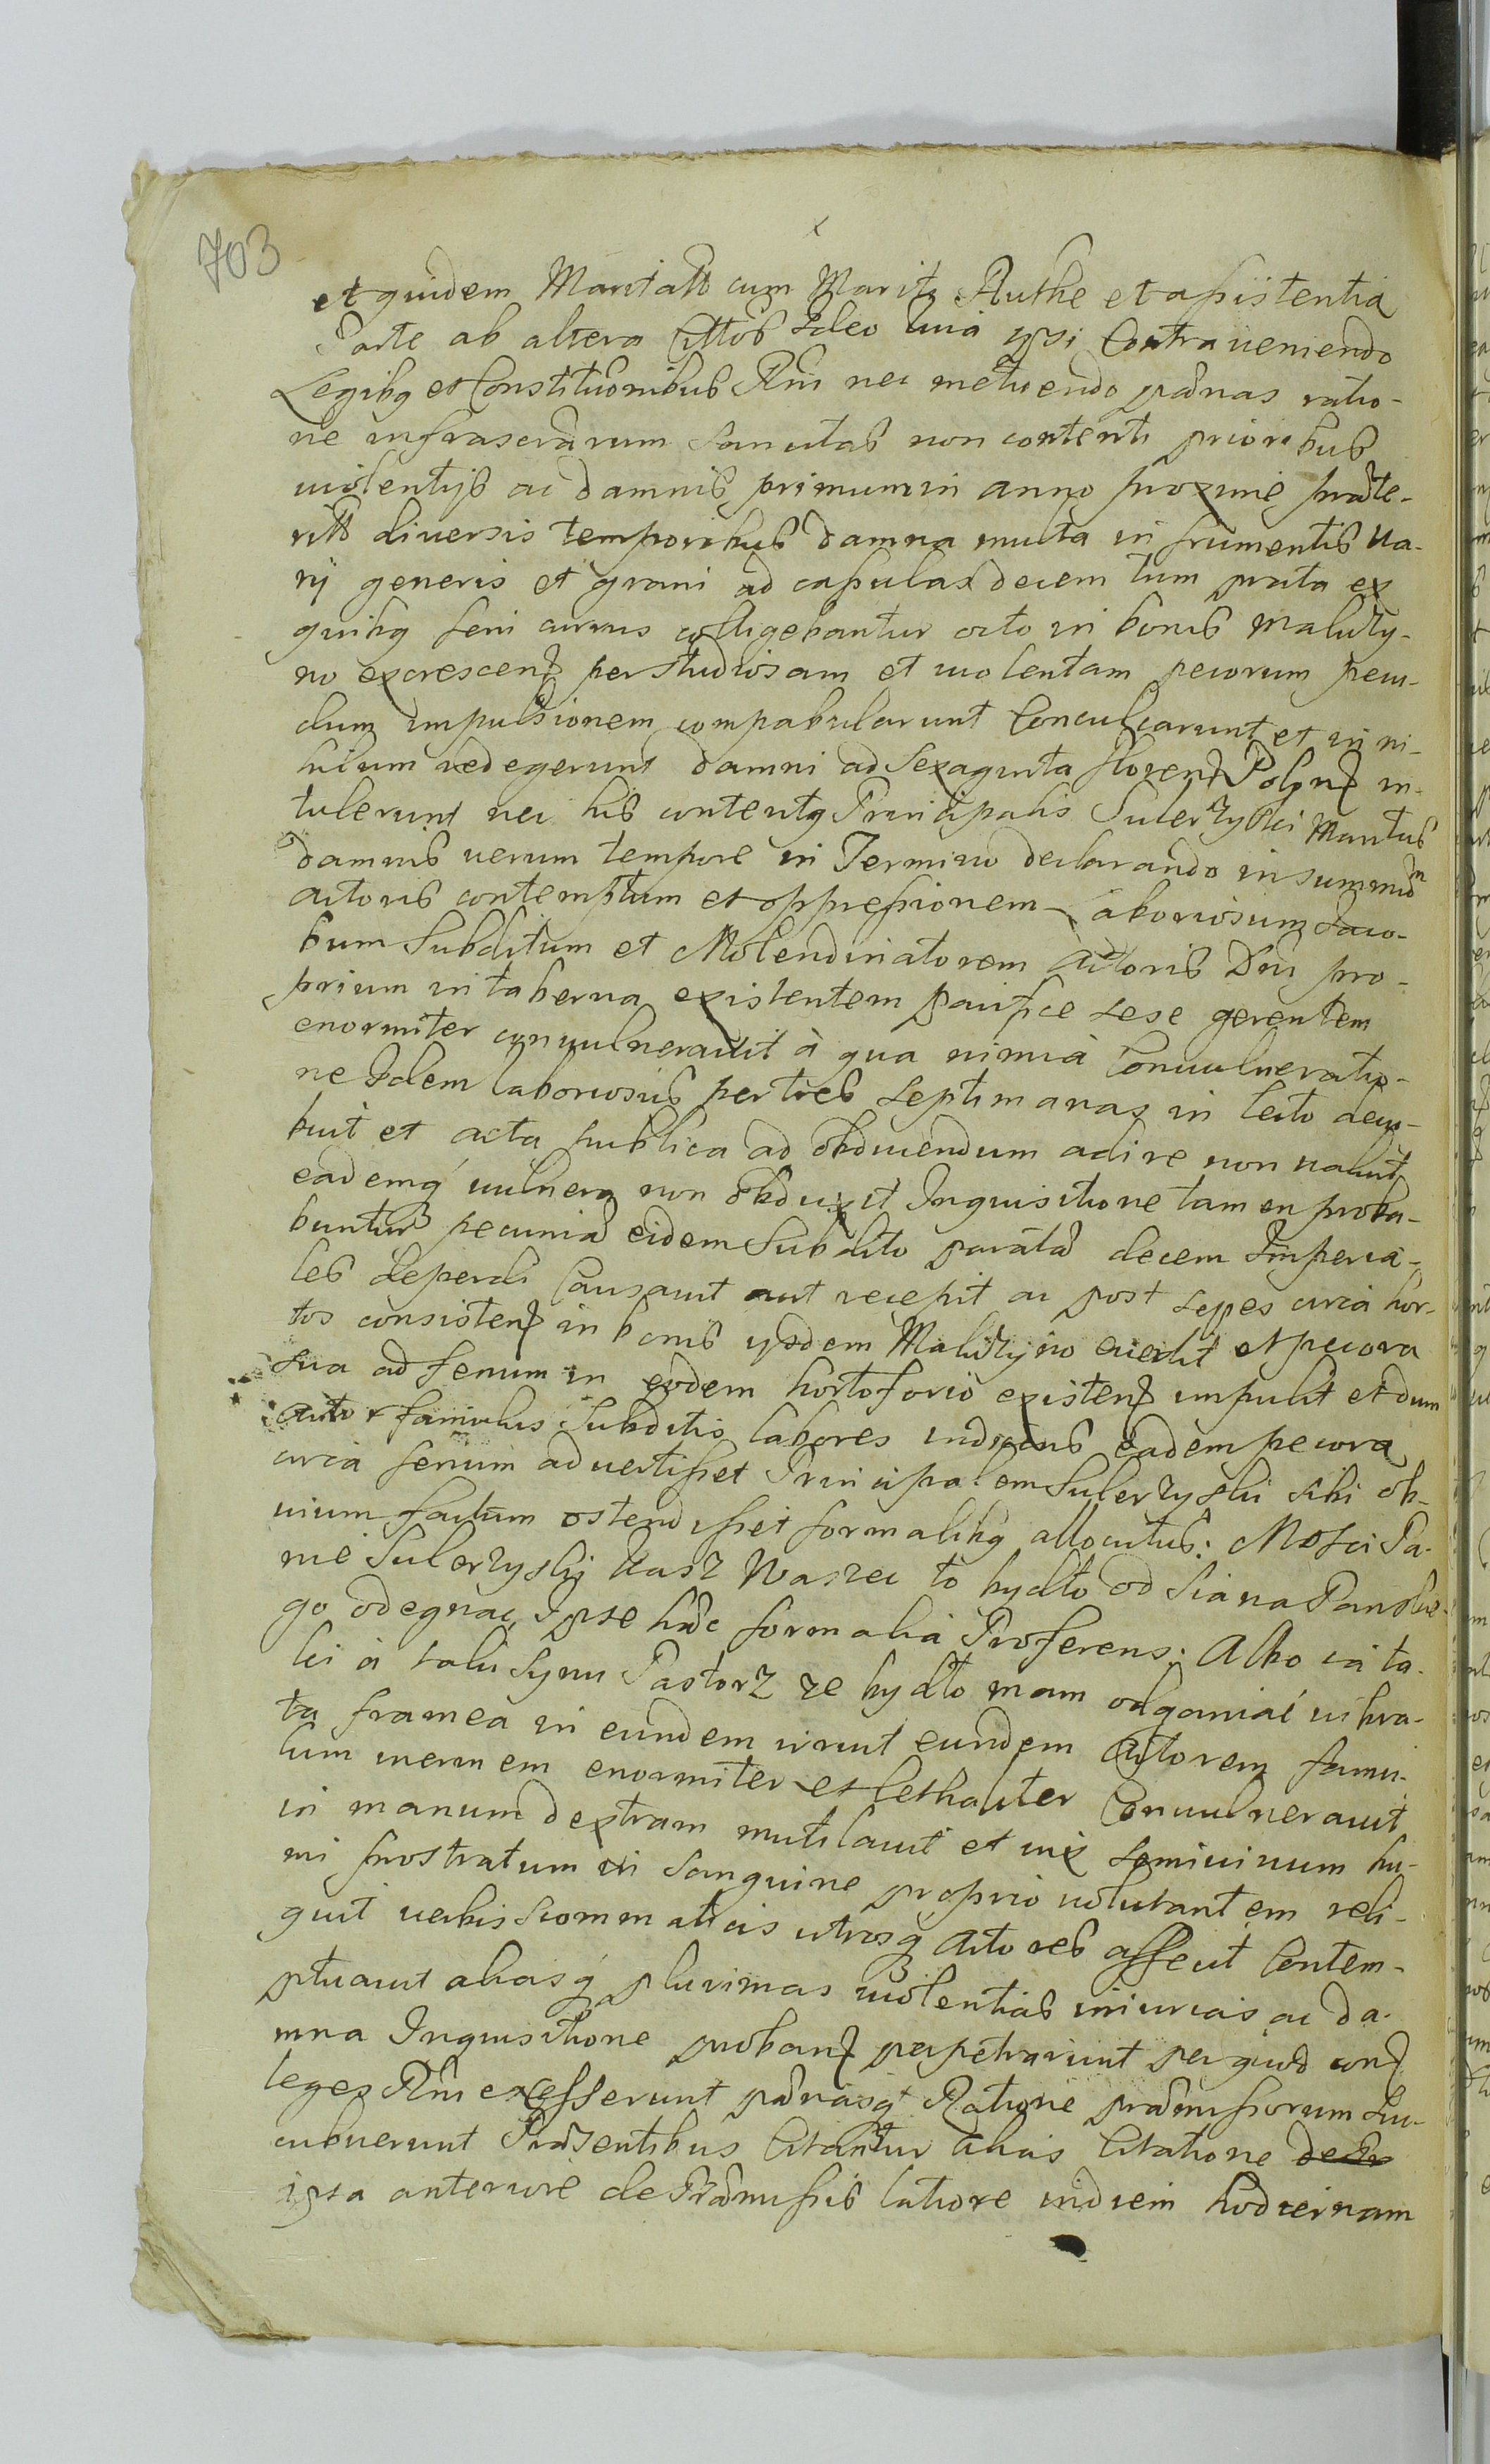 703
et quidem Maritatt cum Marito Authe et assistentia
Parte ab altera Cittos Ideo quia ipsi Contraueniendo
Legibq et Constituonibus Rni nec metuendo pænas ratio-
ne infrascrarum sancitas non contenti prioribus
uiolentijs ac damnis primum in anno proxime præte-
ritto diuersis temporibus damna multa in frumentis va-
rij generis et grani ad capulas decem tum prata ex
quibq feni currus colligebantur octo in bonis Maluzy-
no excrescen per studiosam et uiolentam pecorum pecu-
dum impulsionem compabularunt Conculcarunt et in ni-
hilum redegerunt damni ad sexaginta floren Polqn in-
tulerunt nec his contentq Principalis Sulerzyski Maritus
damnis uerum tempore in Termino declarando in summum
actoris contemptum et oppressionem Laboriosum Iaco-
bum Subditum et Molendinatorem actoris Dni pro-
prium in taberna existentem pacifice sese gerentem
enormiter conuulnerauit à qua nimia Conuulneratio-
ne Idem laboriosus per tres septimanas in lecto decu-
buit et acta publica ad obducendum adire non ualuit
eademq uulnera non obduxit Inquisitione tamen proba-
buntur pecunia eidem Subdito parata decem Imperia-
les deperdi Causauit aut recepit ac post sepes circa hor-
tos consisten in bonis ijsdem Maluzyno euertit et pecora
sua ad fenum in eodem hortoforio existen impulit et dum
actor famulus Subditis labores indicens eadem pecora
circa fenum aduertisset Principalem Sulerzyski sibi ob-
uium factum ostendisset formalibq allocutus: Mosci Pa-
nie Sulerzyski kasz Waszec to bydło od siana Panskie-
go odegnac, Ipse hæc formalia Proferens: Albo ia ta-
ki a taki synu Pastorz ze bydło mam odganiać uibra-
ta framea in eundem irruit eundem Actorem famu-
lum inermem enormiter et lethaliter Conuulnerauit
in manum dextram mutilauit et uix semiuiuum hu-
mi prostratum in sanguine proprio uolutantem reli-
quit uerbis scommaticis utrosq actores affecit Contem-
ptuauit aliasq plurimas uiolentias iniurias ac da-
mna Inquisitione proban perpetrarunt per quod con
leges Rni excesserunt pænasq Ratione præmissorum suc-
cubuerunt Præsentibus Citantur alias Citatione
ipsa anteriore de Præmissis latiore in diem hodiernam